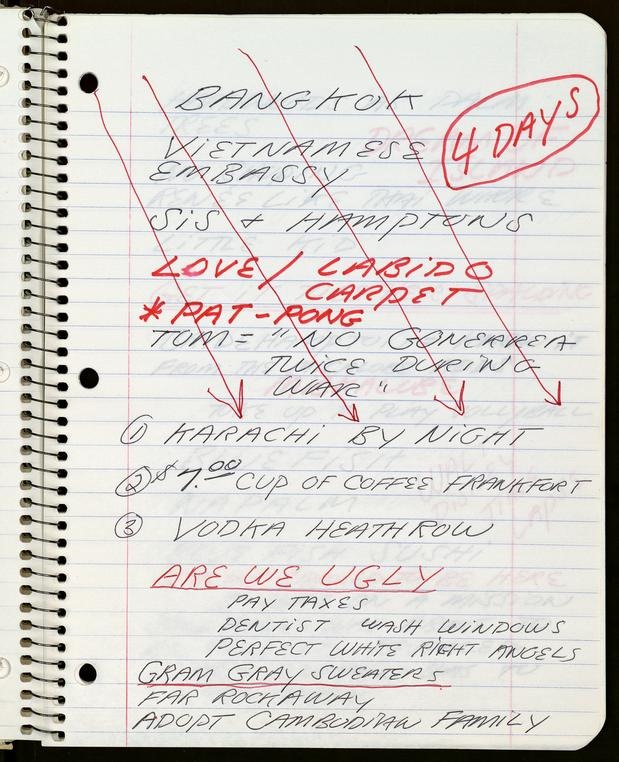 BANGKOK
4 DAYS
ViETNAMESE
EMBASSY
SiS & HAMPTONS
LOVE / LABiDO
CARPET
* PAT-PONG
TOM = "NO GONERREA
TWICE DURiNG
WAR"
① KARACHi BY NiGHT
② $7.00 CUP OF COFFEE FRANKFORT
③ VODKA HEATHROW
ARE WE UGLY
PAY TAXES
DENTIST WASH WINDOWS
PERFECT WHITE RIGHT ANGELS
GRAM GRAY SWEATERS
FAR ROCKAWAY
ADOPT CAMBODIAN FAMILY